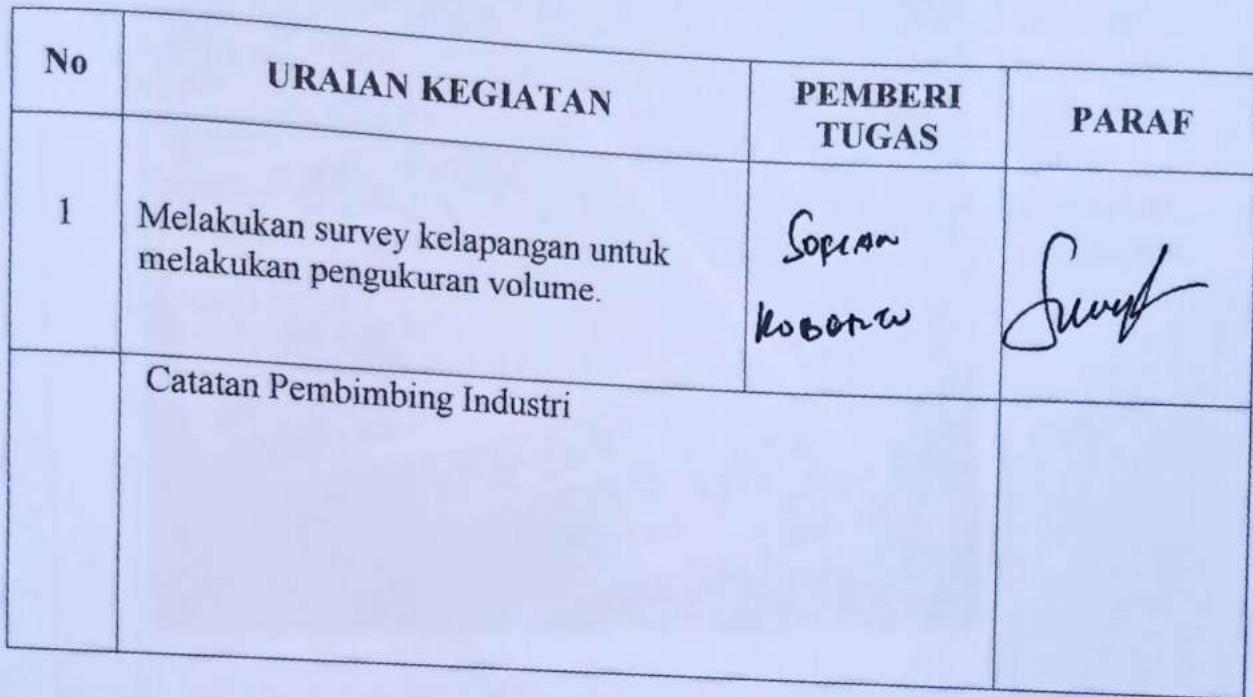 No
URAIAN KEGIATAN
PEMBERI
TUGAS
PARAF
1
Melakukan survey kelapangan untuk
melakukan pengukuran volume.
SOFIAN
Catatan Pembimbing Industri